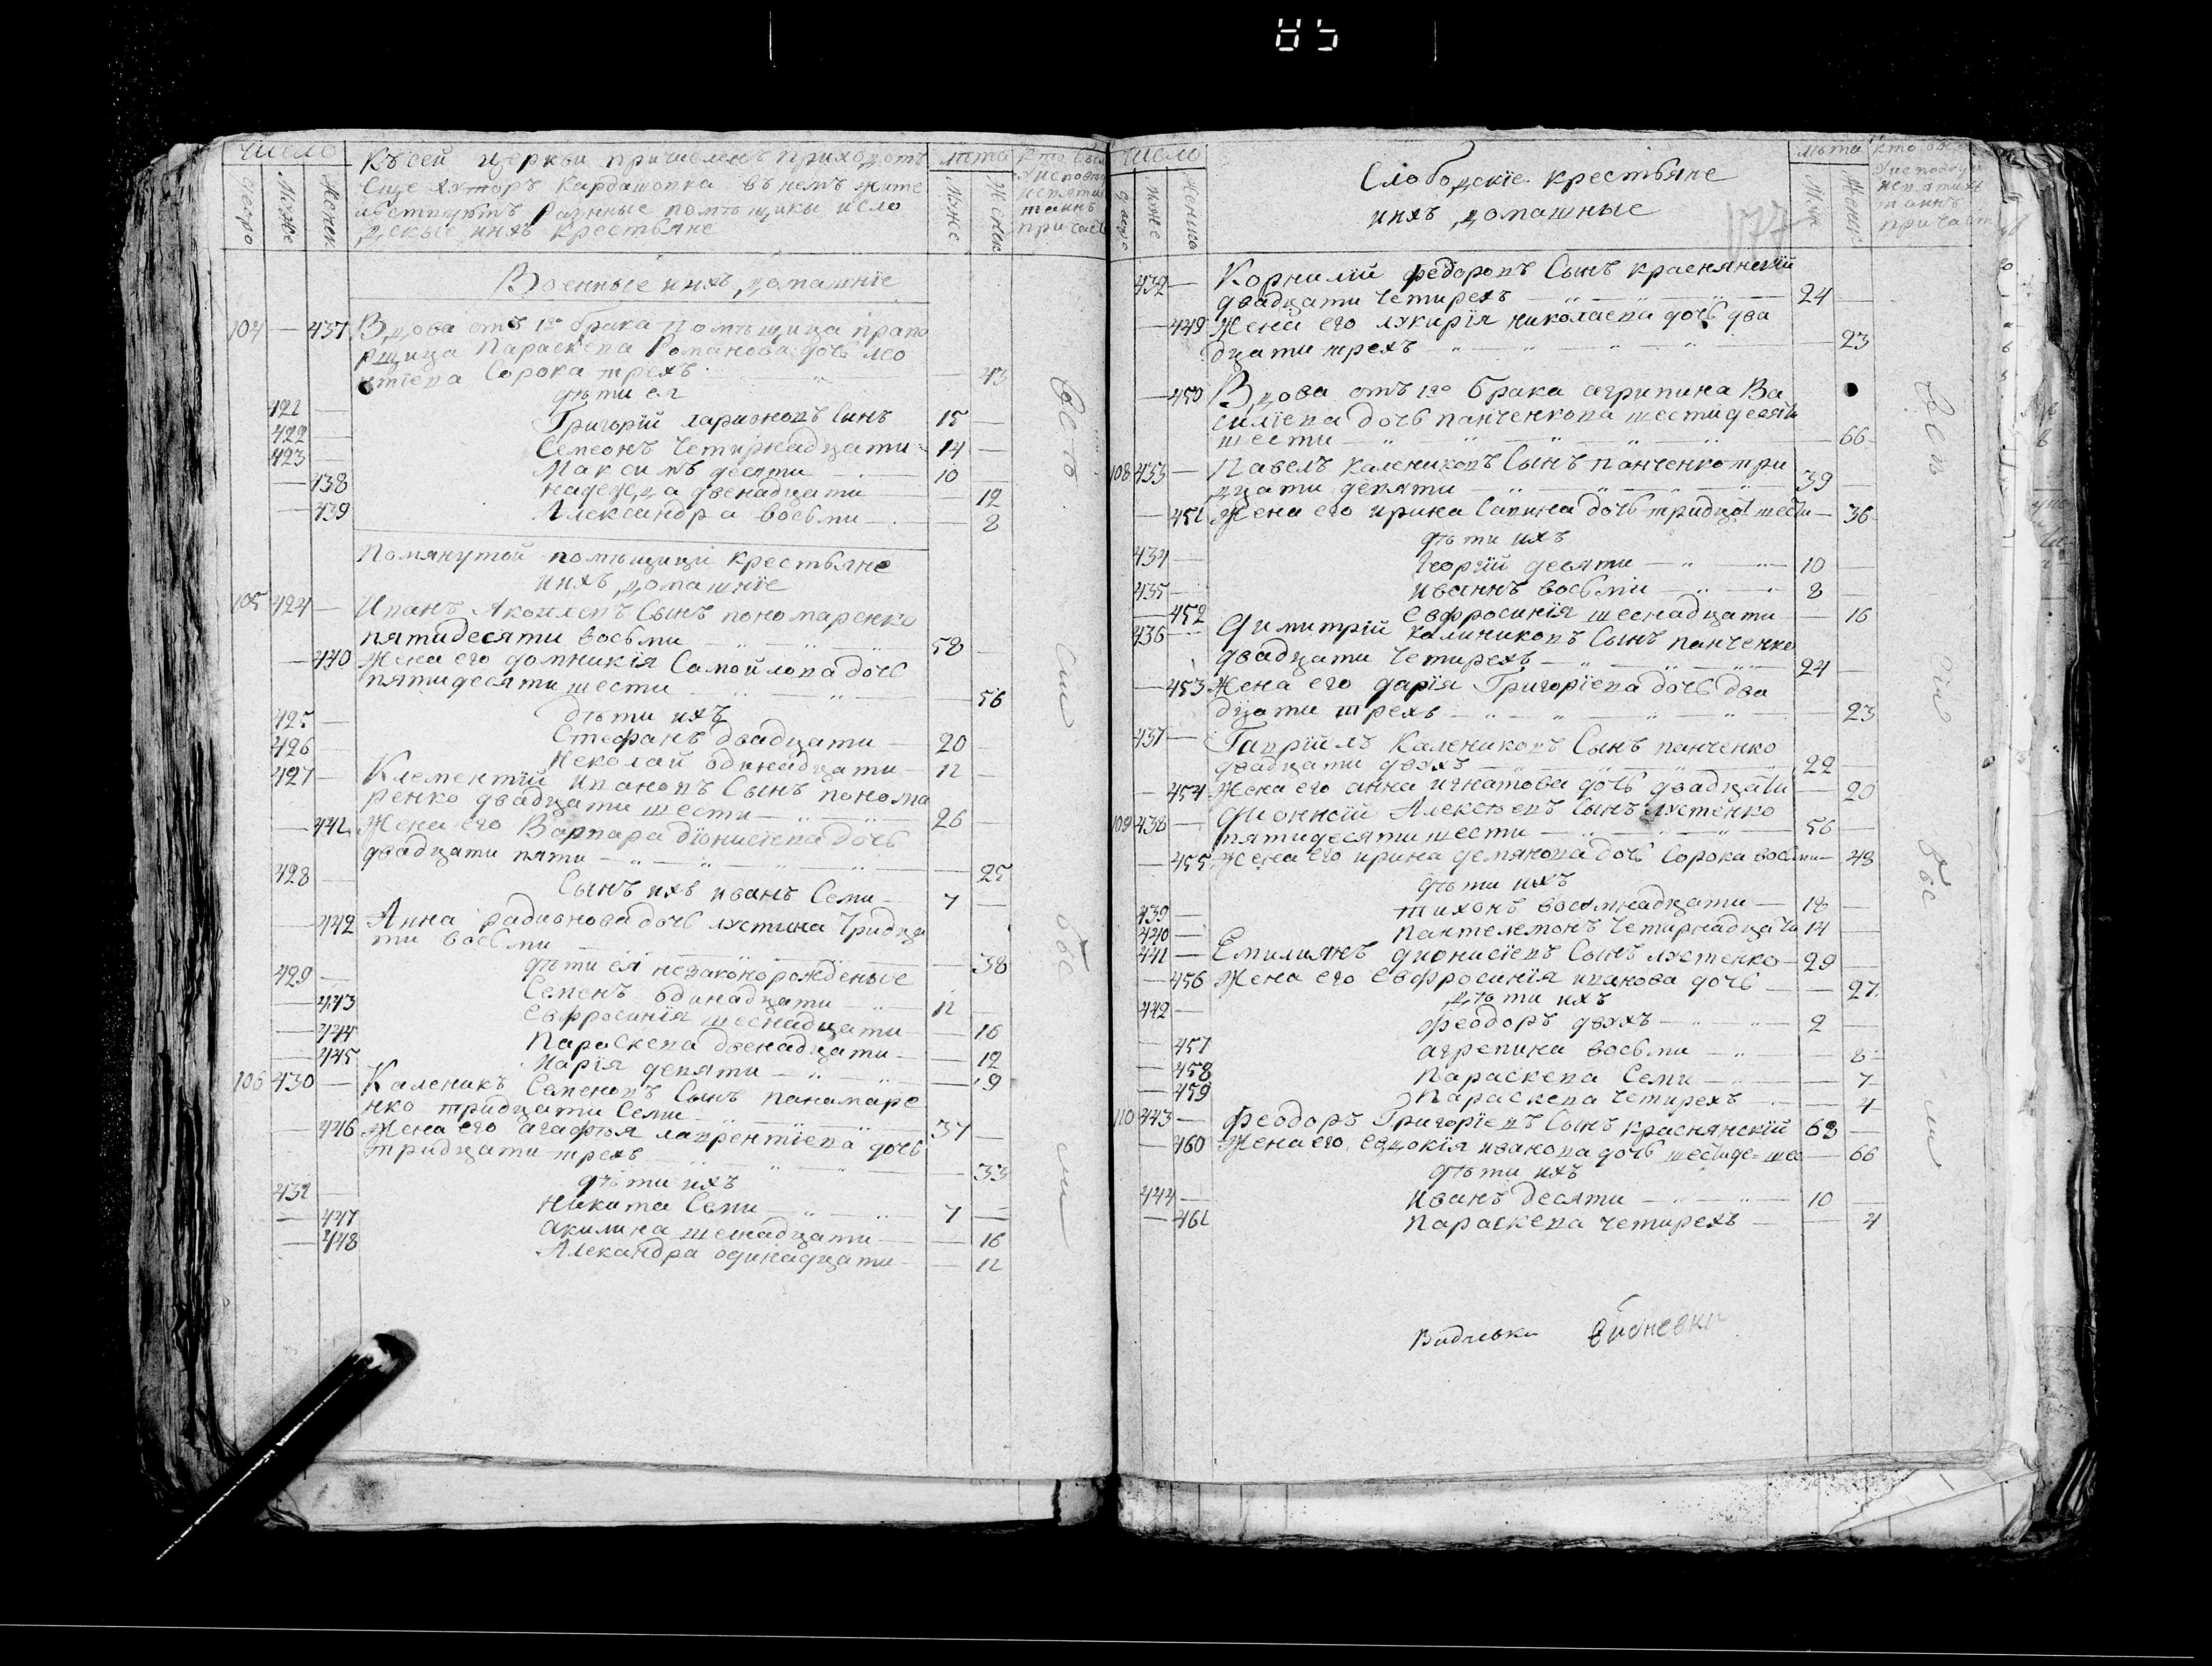 число
Къ сей церкви причисленъ приходомъ
еще хуторъ Кардашовка въ немъ жите
лствуютъ разнные помѣщики и сло
дскые ихъ крестьяне
лѣта
Мужс
Женск
Военные и ихъ домашніе
104 — 437 Вдова отъ 1го брака помѣщица прапо
рщица Параскева Романова дочь лео
нтіева сорока трехъ — 43
дѣти ея
421 — Григорій ларионовъ Сынъ 15 —
422 — Семеонъ четирнадцати 14 —
423 — Максимъ десяти 10
— 438 надежда двенадцати — 12
— 439 Александра восьми — 8
Помянутой помѣщици крестьяне
и ихъ домашніе
105 424 — Иванъ Яковлевъ Сынъ пономаренко
пятидесяти восьми 58 —
— 440 Жена его домникія Самойлова дочь
пятидесяти шести — 56
дѣти ихъ
425 — Стефанъ двадцати 20
426 — Неколай одинадцати 11 —
427 — Клементій Ивановъ Сынъ понома
ренко двадцати шести 26 —
— 441 Жена его Варвара діонисіева дочь
двадцати пяти — 25
428 — Сынъ ихъ иванъ Семи 7 —
— 442 Анна радионова дочь лустина тридца
ти восьми — 38
дѣти ея незаконорожденые
429 — Семенъ одинадцати 11
— 443 Евфросинія шеснадцати — 16
— 444 Параскева двенадцати — 12
— 445 Марія девяти — 9
106 430 — Каленикъ Семеновъ Сынъ панамаре
нко тридцати Семи 37 —
— 446 Жена его агафія лаврентіева дочь
тридцати трехъ — 33
дѣти ихъ
431 — Никита Семи 7 —
— 447 Акилина шеснадцати — 16
— 448 Алекандра одинадцати — 11
Всѣ
сіи
обое
число
двора
муже
женска
Слободскіе крестьяне
и ихъ домашные
177
лѣта
Муж
Женск
432 — Корнилій федоровъ Сынъ краснянскій
двадцати четирехъ 24 —
— 449 Жена его лукирія николаева дочь два
дцати трехъ — 23
— 450 Вдова отъ 1го брака агрипина Ва
силіева дочь панченкова шестидесяти
шести — 66
108 433 — Павелъ калениковъ Сынъ панченко три
дцати девяти 39 —
— 451 Жена его ирина Савина дочь тридцат шести — 36
дѣти ихъ
434 — Георгій десяти 10 —
435 — иваннъ восьми 8
— 452 Евфросинія шеснадцати — 16
436 — Димитрій калиниковъ Сынъ панченко
двадцати четирехъ 24 —
— 453 Жена его дарія Григоріева дочь два
дцати трехъ — 23
437 — Гавріилъ Калениковъ Сынъ панченко
двадцати двухъ 22 —
— 454 Жена его анна игнатова дочь двадцати — 20
109 438 — Дионисій Алексѣевъ Сынъ лустенко
пятидесяти шести 56 —
— 455 Жена его ирина демянова дочь сорока восьми — 48
дѣти ихъ
439 — тихонъ восемнадцати 18 —
440 — Пантелемонъ четирнадцати 14 —
441 — Емилиянъ дионисіевъ Сынъ лустенко 29 —
— 456 Жена его Евфросинія иванова дочь — 27
дѣти ихъ
442 — Феодоръ двухъ 2 —
— 457 агрепина восьми — 8
— 458 Параскева Семи — 7
— 459 Параскева четирехъ — 4
110 443 — Феодоръ Григоріевъ Сынъ краснянскій 68 —
— 460 Жена его евдокія иванова дочь шестьде= шес — 66
дѣти ихъ
444 — иванъ десяти 10
— 461 Параскева четирехъ — 4